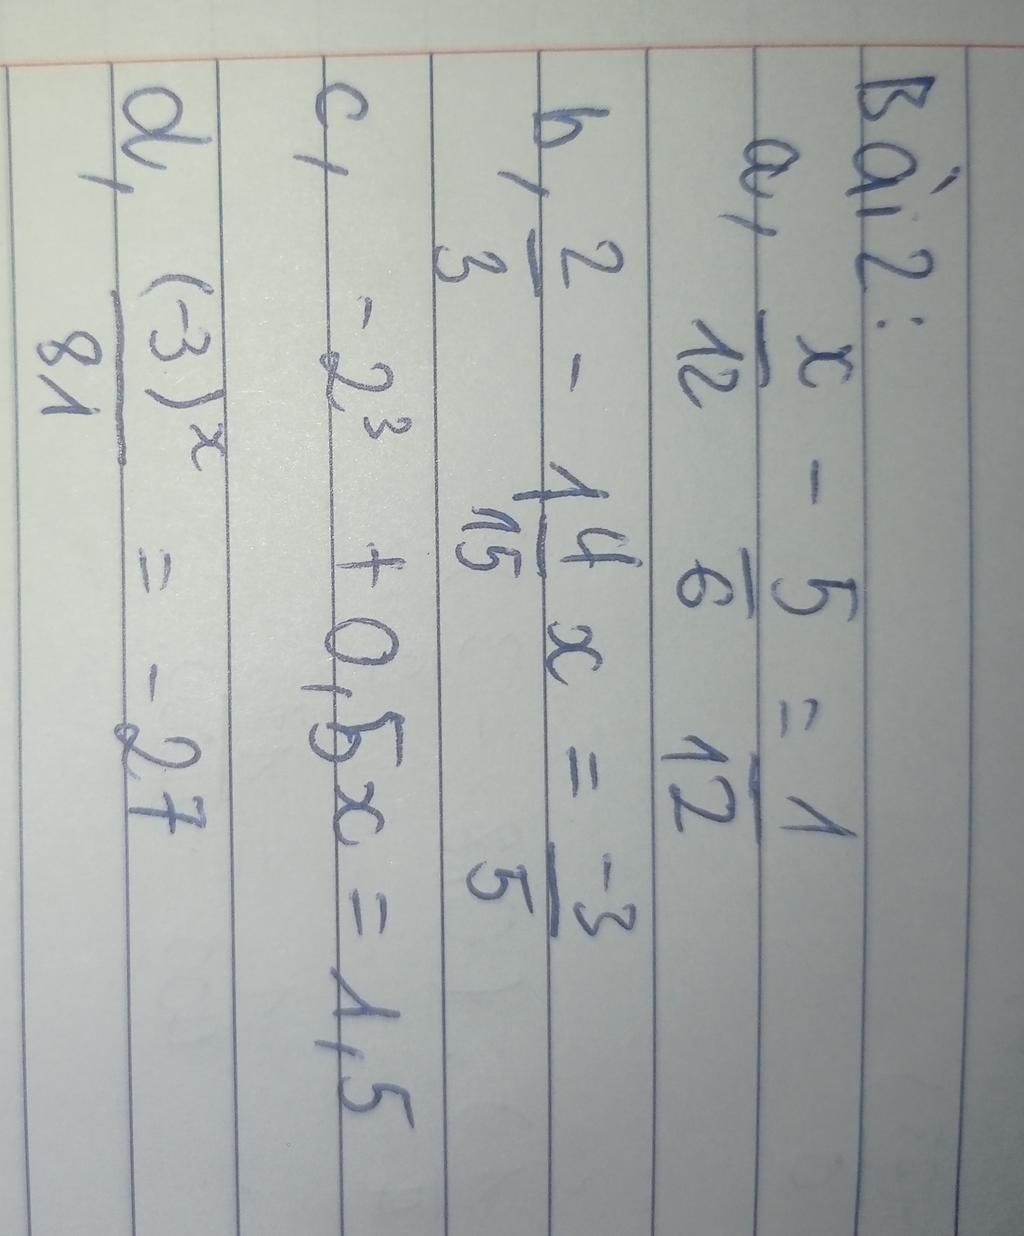 Bài 2:
a, x/12 - 5/6 = 1/12
b, 2/3 - 14/15 x = -3/5
c, -2³ + 0,5x = 1,5
d, (-3)ˣ/81 = -27